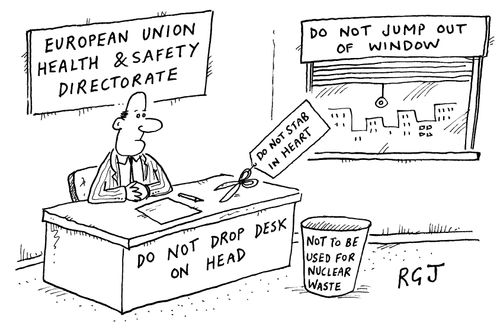 EUROPEAN UNION
HEALTH & SAFETY
DIRECTORATE
DO NOT JUMP OUT
OF WINDOW
DO NOT STAB
IN HEART
DO NOT DROP DESK
ON HEAD
NOT TO BE
USED FOR
NUCLEAR
WASTE
RGJ